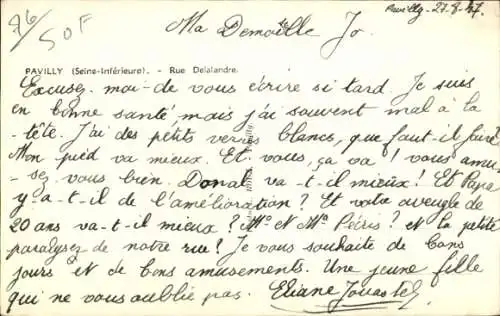 76/SOF
Pavilly - 27-8-47.
Ma Demoiselle Jo.
PAVILLY (Seine-Inférieure). - Rue Delalandre.
Excusez-moi-de vous écrire si tard. Je suis
en bonne santé, mais j'ai souvent mal à la
-tête. J'ai des petits verres blancs, que faut-il faire
Mon pied va mieux. Et vous, ça va! vous amu-
-sez vous bien. Donat va-t-il mieux! Et Papa
y-a-t-il de l'amélioration? Et votre aveugle de
20 ans va-t-il mieux? Mr et Me Péris? et la petite
paralysez de notre rue! Je vous souhaite de bons
jours et de bons amusements. Une jeune fille
qui ne vous oublie pas. Eliane